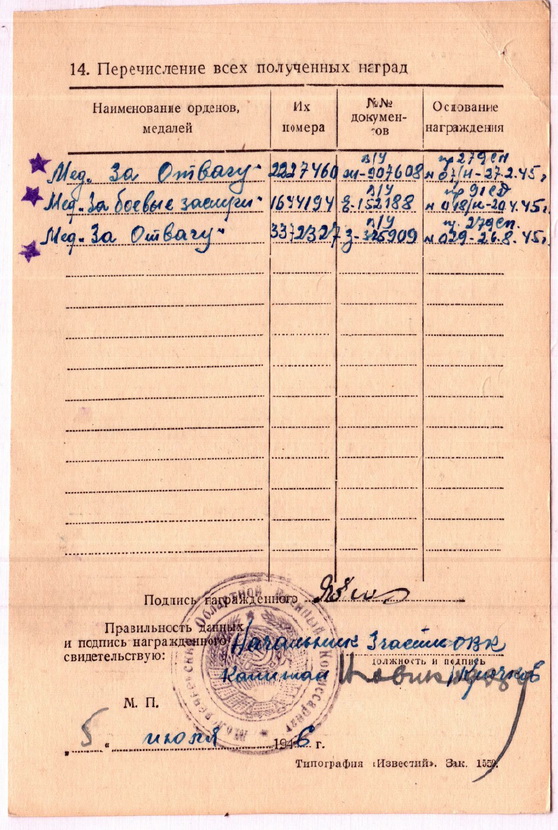 14. Перечисление всех полученных наград
Наименование орденов, медалей
Их номера
№№ докумен-тов
Основание награждения
Мед. За Отвагу" 2227460 в/у ж-907608 пр 279сп № 07/н-27.2.45г
Мед. За боевые заслуги" 1644194 в/у 152188 пр 91сд № 018/н-20.4.45г.
Мед. За Отвагу" 3372327 в/у з-325909 пр. 279сп. № 029-26.8.45г.
Подпись награжденного
Правильность данных
и подпись награжденного
свидетельствую:
Начальник 3 части ОВК
должность и подпись
Капитан
М. П.
„ 5 " июля 1946 г.
Типография «Известий». Зак. 1559.